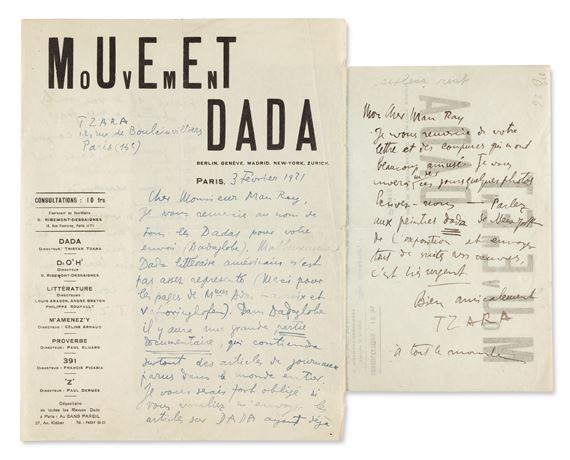 MOUVEMENT
DADA
BERLIN, GENÈVE, MADRID, NEW-YORK, ZURICH.
TZARA
12, rue de Boulainvilliers
Paris (16e)
PARIS, 3 Février 1921
CONSULTATIONS : 10 frs
S'adresser au Secrétaire
G. RIBEMONT-DESSAIGNES
18, Rue Fourcroy, Paris (17e)
DADA
DIRECTEUR : TRISTAN TZARA
DdO4H2
DIRECTEUR
G. RIBEMONT-DESSAIGNES
LITTÉRATURE
DIRECTEURS
LOUIS ARAGON, ANDRÉ BRETON
PHILIPPE SOUPAULT
M'AMENEZ'Y
DIRECTEUR : CÉLINE ARNAUD
PROVERBE
DIRECTEUR : PAUL ELUARD
391
DIRECTEUR : FRANCIS PICABIA
'Z'
DIRECTEUR : PAUL DERMÉE
Dépositaire
de toutes les Revues Dada
à Paris : Au SANS PAREIL
37, Av. Kléber Tél. : PASSY 25-22
Cher Monsieur Man Ray,
Je vous remercie au nom de
tous les Dadas pour votre
envoi (Dadaglobe). Malheureusement
Dada littéraire américain n'est
pas assez représenté (Merci pour
les pages de Mmes
Dans Dadaglobe
il y aura une grande partie
documentaire, qui contiendra
surtout des articles de journaux
parus dans le monde entier.
Je vous serais fort obligé si
vous vouliez m'envoyer les
articles sur DADA ayant déjà
Mon cher Man Ray
Je vous remercie de votre
lettre et des coupures qui m'ont
beaucoup amusé. Je vous
ces jours quelques photos
Ecrivez-nous — Parlez
aux peintres dada de New York
de l'exposition et envoyez
tout de suite vos œuvres,
c'est très urgent
Bien amicalement
TZARA
à tout le monde
MOUVEMENT
DADA